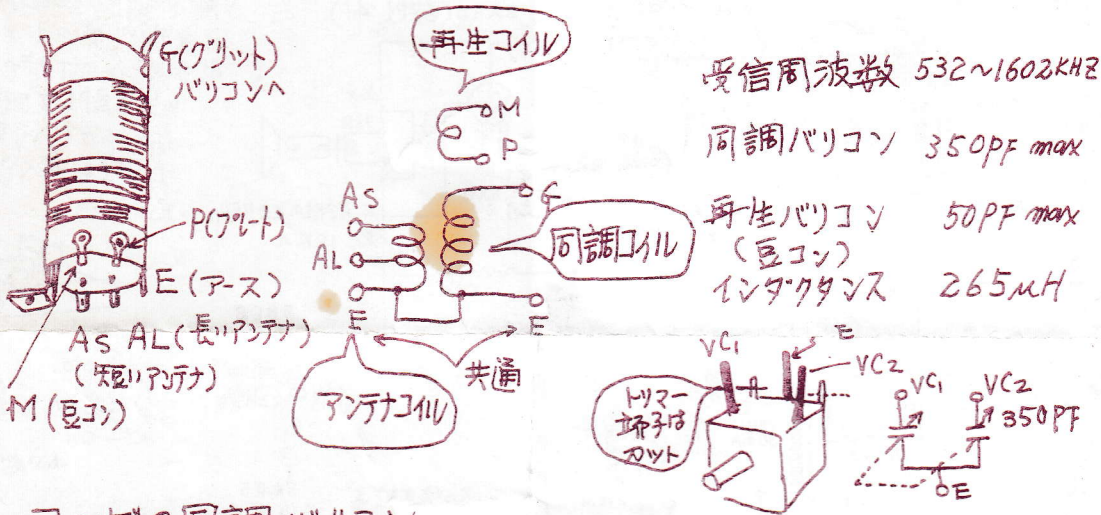 G(グリット)
バリコンへ
P(プレート)
E(アース)
AS AL(長いアンテナ)
(短いアンテナ)
M(豆コン)
再生コイル
M
P
AS
AL
E
G
同調コイル
E
共通
アンテナコイル
受信周波数 532~1602KHZ
同調バリコン 350PF max
再生バリコン 50PF max
(豆コン)
インダクタンス 265μH
VC1
E
VC2
トリマー
端子は
カット
VC1
VC2
350PF
E